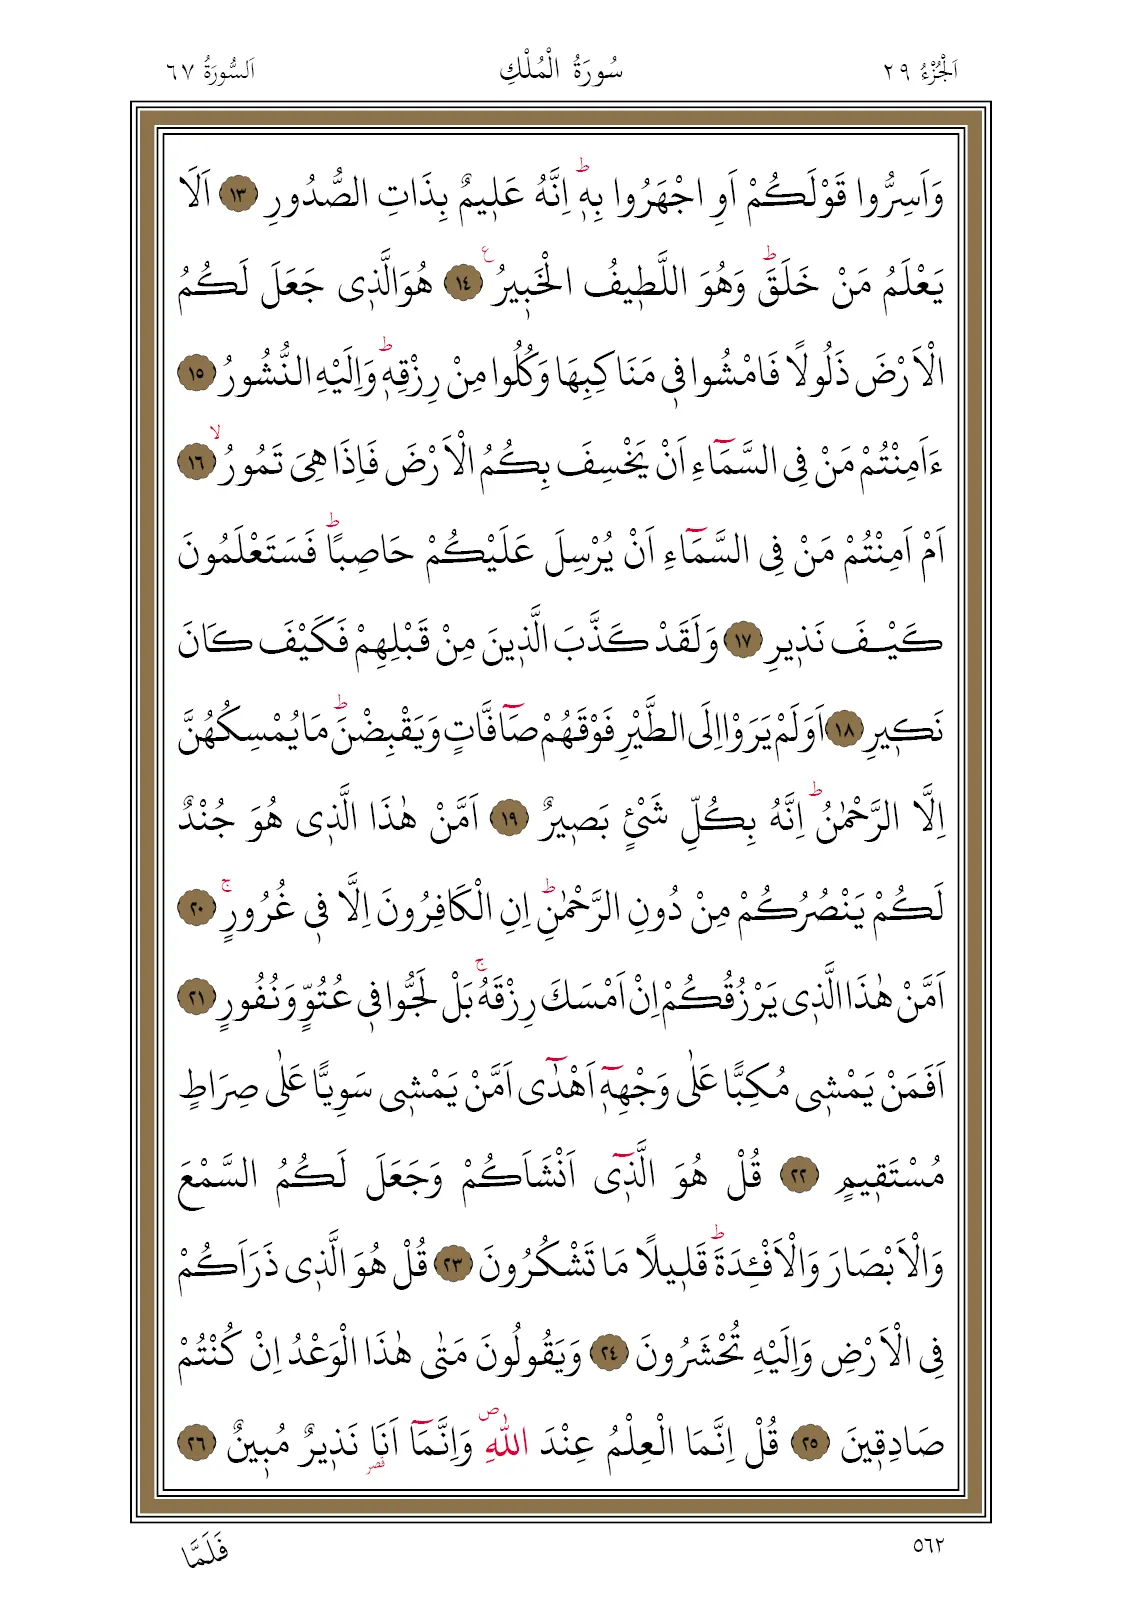 اَلْجُزْءُ ٢٩ سُورَةُ الْمُلْكِ اَلسُّورَةُ ٦٧
وَاَسِرُّوا قَوْلَكُمْ اَوِ اجْهَرُوا بِهٖۜ اِنَّهُ عَلٖيمٌ بِذَاتِ الصُّدُورِ ١٣ اَلَا
يَعْلَمُ مَنْ خَلَقَۜ وَهُوَ اللَّطٖيفُ الْخَبٖيرُ ࣖ ١٤ هُوَ الَّذٖى جَعَلَ لَكُمُ
الْاَرْضَ ذَلُولًا فَامْشُوا فٖى مَنَاكِبِهَا وَكُلُوا مِنْ رِزْقِهٖۜ وَاِلَيْهِ النُّشُورُ ١٥
ءَاَمِنْتُمْ مَنْ فِى السَّمَٓاءِ اَنْ يَخْسِفَ بِكُمُ الْاَرْضَ فَاِذَا هِىَ تَمُورُۙ ١٦
اَمْ اَمِنْتُمْ مَنْ فِى السَّمَٓاءِ اَنْ يُرْسِلَ عَلَيْكُمْ حَاصِبًاۜ فَسَتَعْلَمُونَ
كَيْفَ نَذٖيرِ ١٧ وَلَقَدْ كَذَّبَ الَّذٖينَ مِنْ قَبْلِهِمْ فَكَيْفَ كَانَ
نَكٖيرِ ١٨ اَوَلَمْ يَرَوْا اِلَى الطَّيْرِ فَوْقَهُمْ صَٓافَّاتٍ وَيَقْبِضْنَۜ مَا يُمْسِكُهُنَّ
اِلَّا الرَّحْمٰنُۜ اِنَّهُ بِكُلِّ شَىْءٍ بَصٖيرٌ ١٩ اَمَّنْ هٰذَا الَّذٖى هُوَ جُنْدٌ
لَكُمْ يَنْصُرُكُمْ مِنْ دُونِ الرَّحْمٰنِۜ اِنِ الْكَافِرُونَ اِلَّا فٖى غُرُورٍۚ ٢٠
اَمَّنْ هٰذَا الَّذٖى يَرْزُقُكُمْ اِنْ اَمْسَكَ رِزْقَهُۚ بَلْ لَجُّوا فٖى عُتُوٍّ وَنُفُورٍ ٢١
اَفَمَنْ يَمْشٖى مُكِبًّا عَلٰى وَجْهِهٖٓ اَهْدٰٓى اَمَّنْ يَمْشٖى سَوِيًّا عَلٰى صِرَاطٍ
مُسْتَقٖيمٍ ٢٢ قُلْ هُوَ الَّذٖٓى اَنْشَاَكُمْ وَجَعَلَ لَكُمُ السَّمْعَ
وَالْاَبْصَارَ وَالْاَفْـِٔدَةَۜ قَلٖيلًا مَا تَشْكُرُونَ ٢٣ قُلْ هُوَ الَّذٖى ذَرَاَكُمْ
فِى الْاَرْضِ وَاِلَيْهِ تُحْشَرُونَ ٢٤ وَيَقُولُونَ مَتٰى هٰذَا الْوَعْدُ اِنْ كُنْتُمْ
صَادِقٖينَ ٢٥ قُلْ اِنَّمَا الْعِلْمُ عِنْدَ اللّٰهِۖ وَاِنَّمَٓا اَنَا۬ قصر نَذٖيرٌ مُبٖينٌ ٢٦
٥٦٢ فَلَمَّا